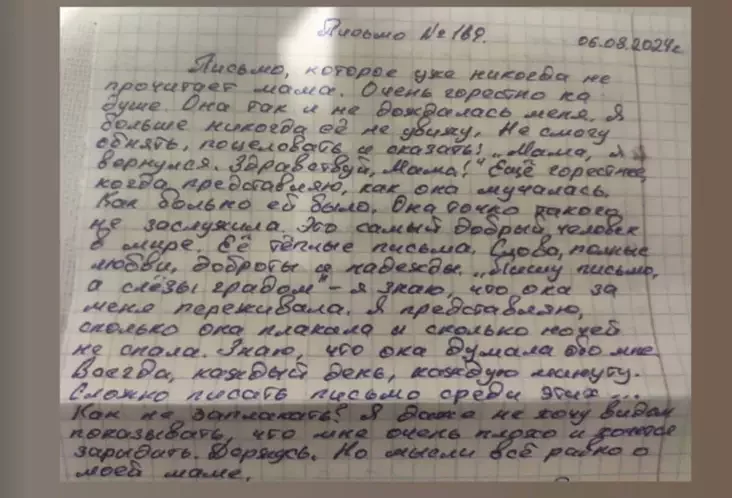 Письмо № 169.
06.08.2024г
Письмо, которое уже никогда не
прочитает мама. Очень горестно на
душе. Она так и не дождалась меня. Я
больше никогда её не увижу. Не смогу
обнять, поцеловать и сказать: „Мама, я
вернулся. Здравствуй, Мама!" Ещё горестнее,
когда представляю, как она мучалась.
Как больно ей было. Она точно такого
не заслужила. Это самый добрый человек
в мире. Её тёплые письма. Слова, полные
любви, доброты и надежды. „Пишу письмо,
а слёзы градом" - я знаю, что она за
меня переживала. Я представляю,
сколько она плакала и сколько ночей
не спала. Знаю, что она думала обо мне
всегда, каждый день, каждую минуту.
Сложно писать письмо среди этих ...
Как не заплакать! Я даже не хочу видом
показывать, что мне очень плохо и хочется
зарыдать. Держусь. Но мысли всё равно о
моей маме.